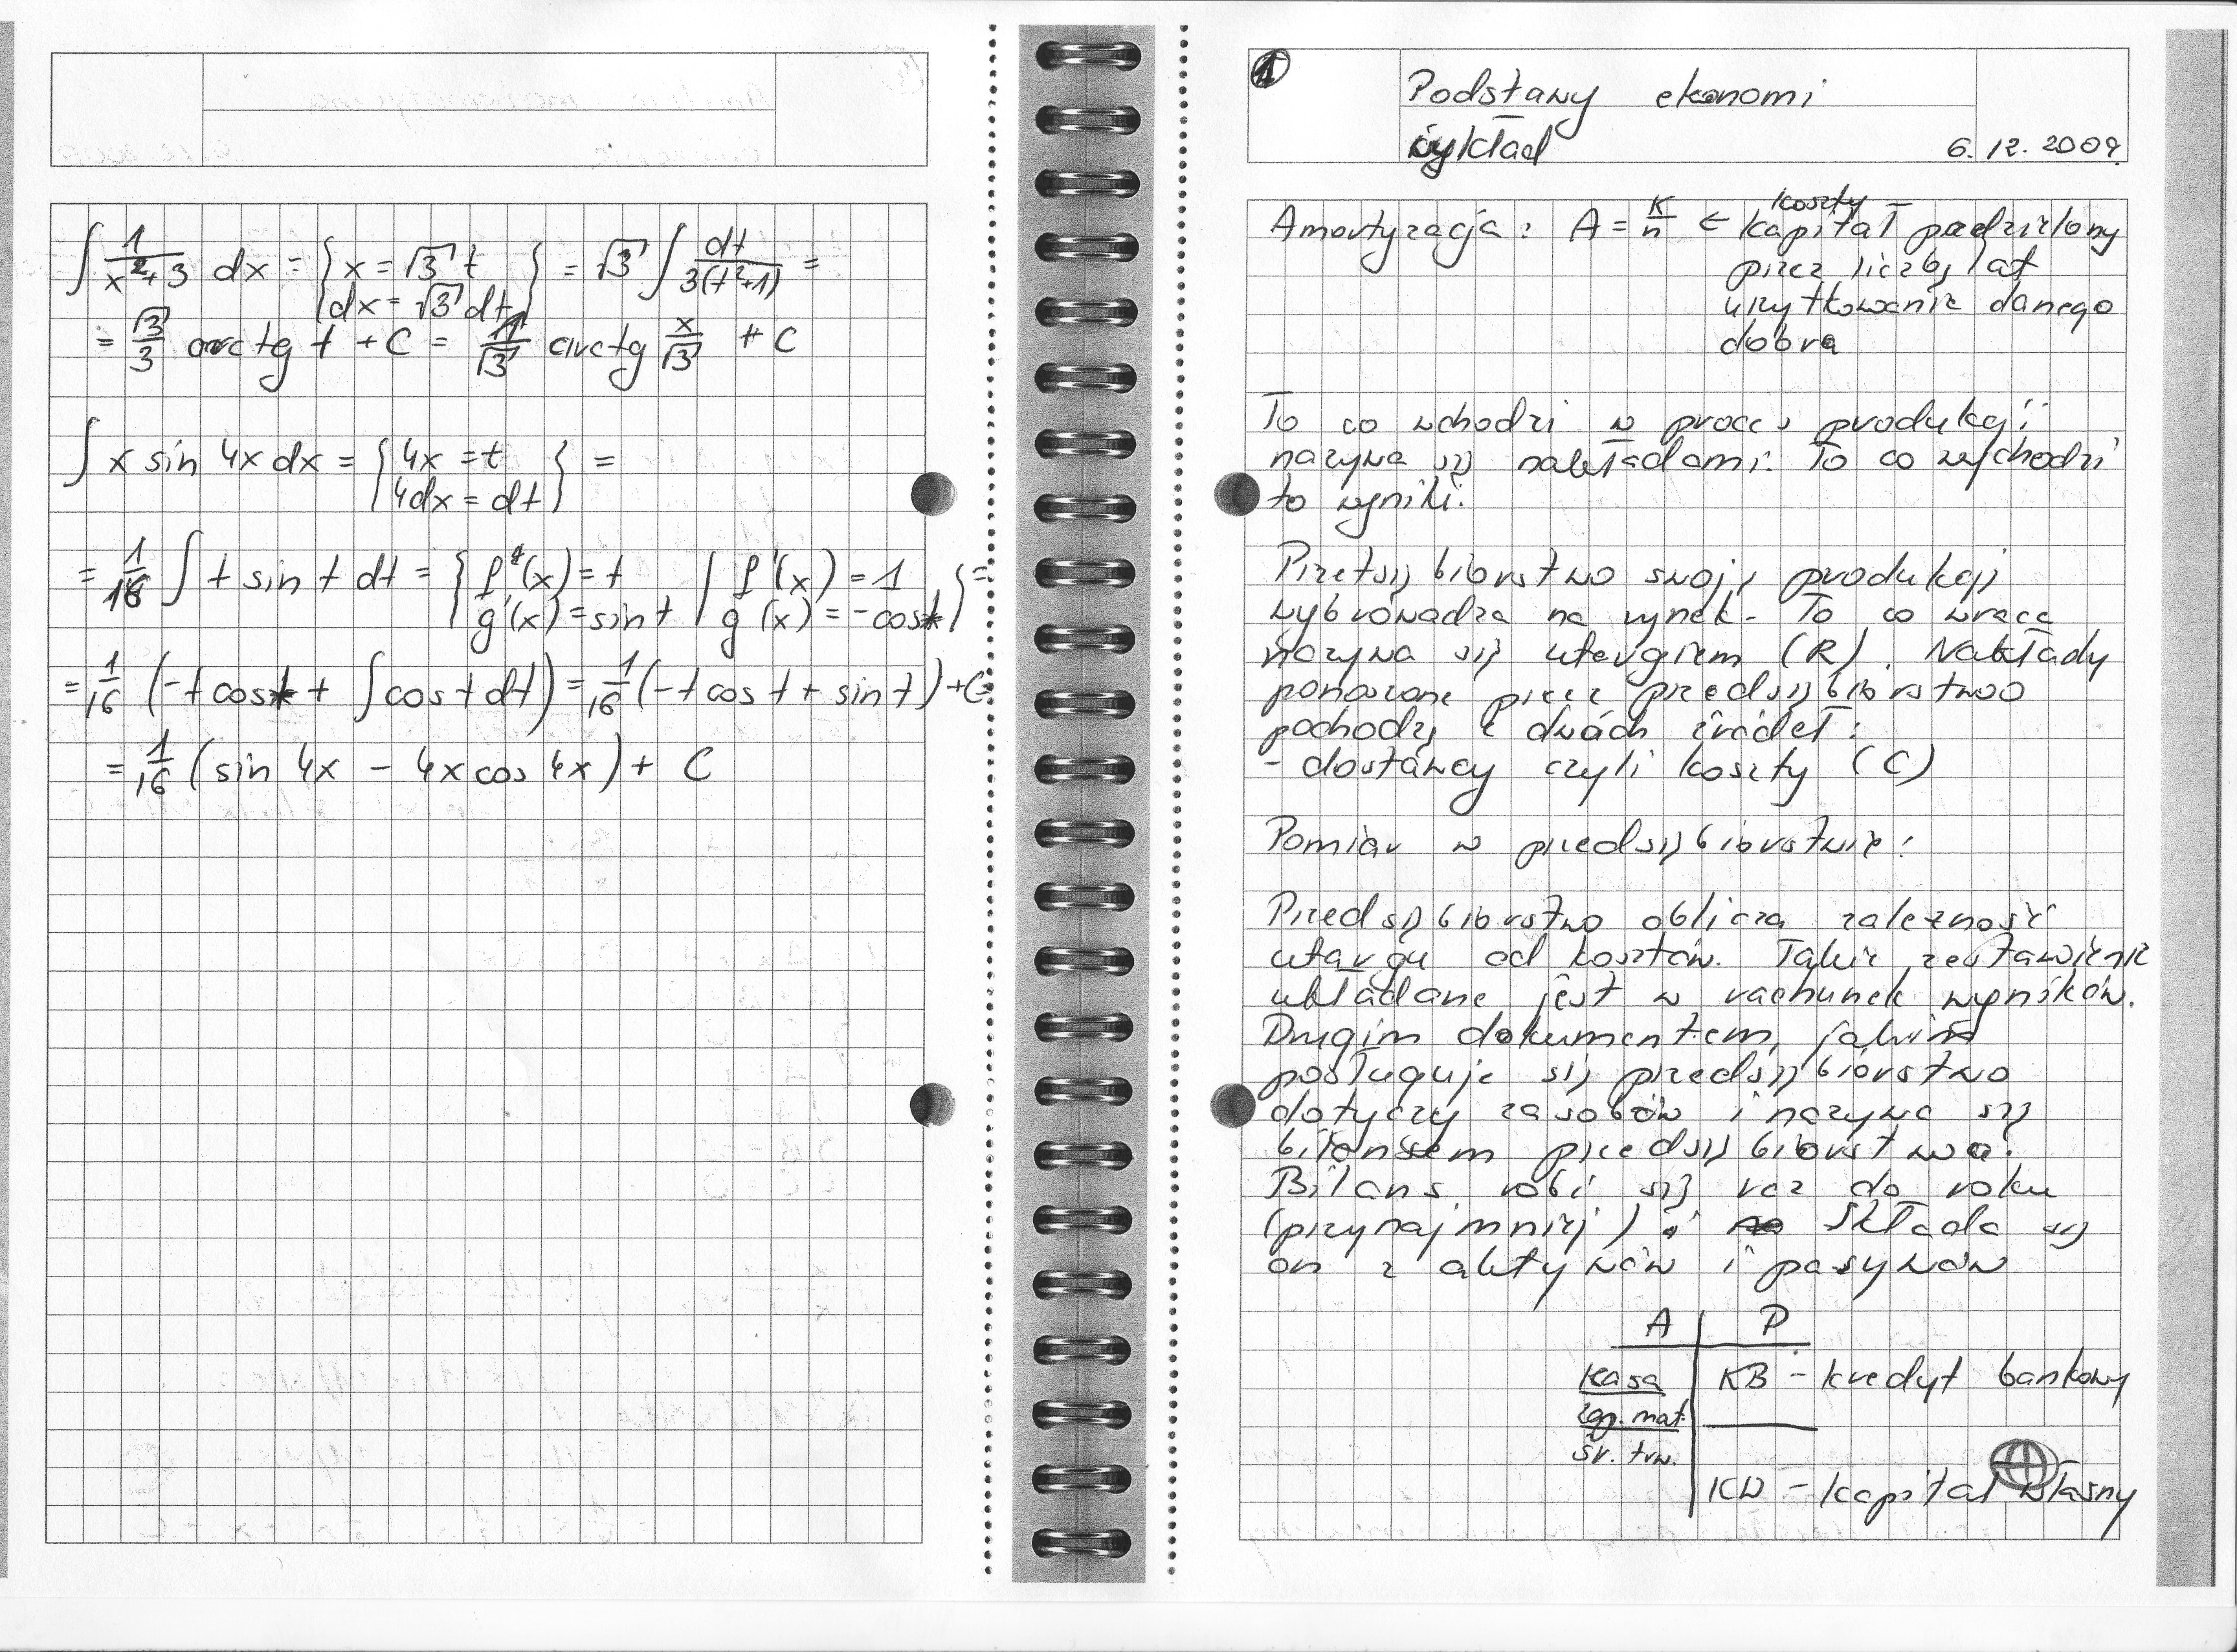 ∫ 1/(x²+3) dx = { x = √3 t
dx = √3 dt } = √3 ∫ dt/(3(t²+1)) =
= √3/3 arctg t + C = 1/√3 arctg x/√3 + C
∫ x sin 4x dx = { 4x = t
4dx = dt } =
= 1/16 ∫ t sin t dt = { f(x) = t | f'(x) = 1
g'(x) = sin t | g(x) = -cos t } =
= 1/16 (-t cos t + ∫ cos t dt) = 1/16 (-t cos t + sin t) + C =
= 1/16 (sin 4x - 4x cos 4x) + C
1
Podstawy ekonomi
wykład
6.12.2009.
Amortyzacja: A = K/n ← koszty
kapitał podzielony
przez liczbę lat
użytkowanie danego
dobra
To co wchodzi w proces produkcji
nazywa się nakładami. To co wychodzi
to wyniki.
Przetsiębiorstwo swoją produkcję
wybrowadza na rynek. To co wraca
nazywa się utargiem (R). Nakłady
ponoszone przez przedsiębiorstwoo
pochodzą z dwóch źródeł:
- dostawcy czyli koszty (C)
Pomiar w przedsiębiorstwie:
Przedsiębiorstwo oblicza zależność
utargu od kosztów. Takie zestawienie
układane jest w rachunek wyników.
Drugim dokumentem, jakim
posługuje się przedsiębiorstwo
dotyczy zasobów i nazywa się
bilansem przedsiębiorstwa.
Bilans robi się raz do roku
(przynajmniej) i składa się
on z aktywów i pasywów
A | P
Kasa | KB - kredyt bankowy
zap. mat.
śr. trw.
KW - kapitał własny